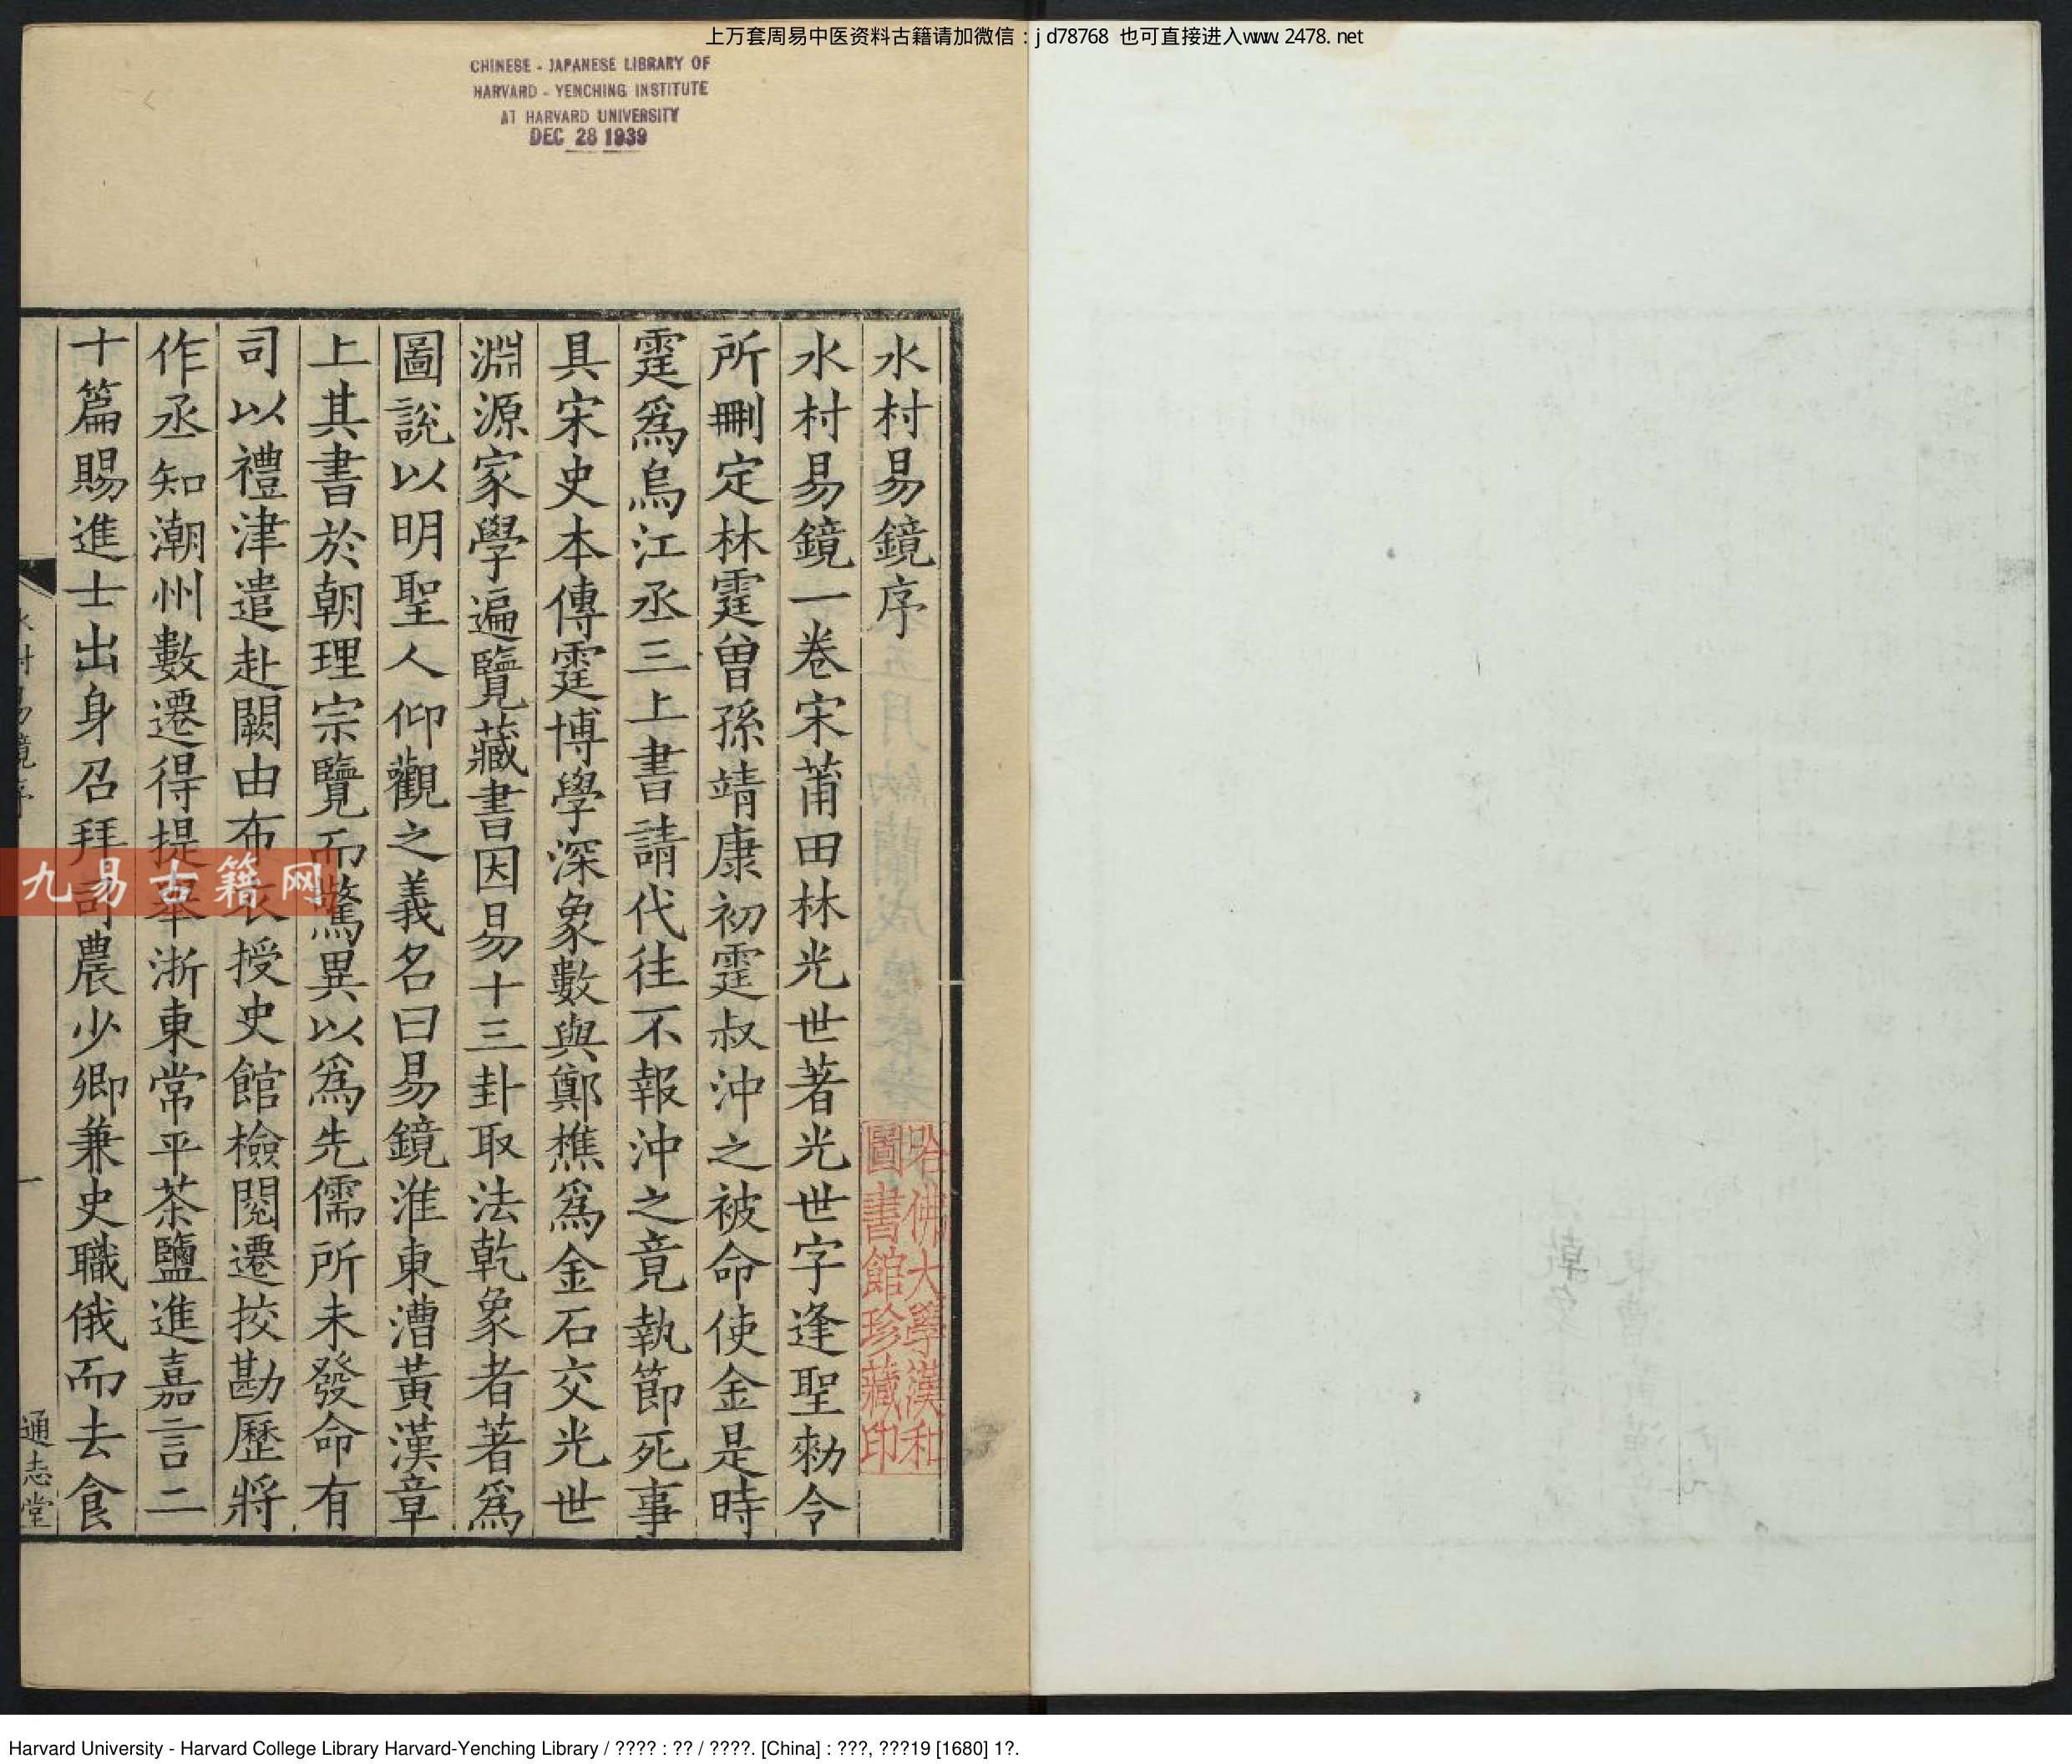 上万套周易中医资料古籍请加微信：jd78768 也可直接进入www.2478.net
CHINESE - JAPANESE LIBRARY OF
HARVARD - YENCHING INSTITUTE
AT HARVARD UNIVERSITY
DEC 28 1939
水村易鏡序
哈佛大學漢和
圖書館珍藏印
水村易鏡一卷宋莆田林光世著光世字逢聖勑令
所刪定林霆曾孫靖康初霆叔沖之被命使金是時
霆爲烏江丞三上書請代往不報沖之竟執節死事
具宋史本傳霆博學深象數與鄭樵爲金石交光世
淵源家學遍覽藏書因易十三卦取法乾象者著爲
圖說以明聖人仰觀之義名曰易鏡淮東漕黃漢章
上其書於朝理宗覽而驚異以爲先儒所未發命有
司以禮津遣赴闕由布衣授史館檢閱遷挍勘歷將
作丞知潮州數遷得提舉浙東常平茶鹽進嘉言二
十篇賜進士出身召拜司農少卿兼史職俄而去食
一
通志堂
九易古籍网
Harvard University - Harvard College Library Harvard-Yenching Library / ???? : ?? / ????. [China] : ???, ???19 [1680] 1?.